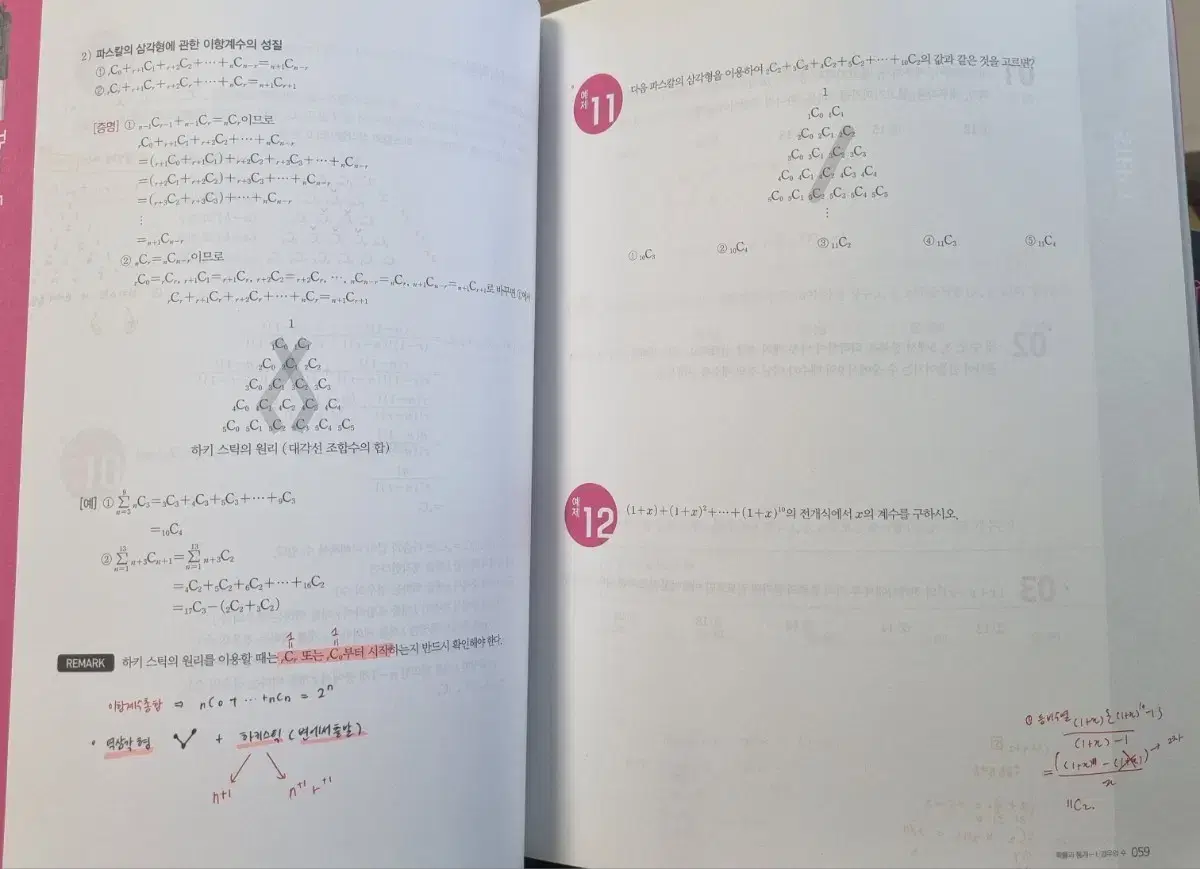 2) 파스칼의 삼각형에 관한 이항계수의 성질
① ᵣC₀+ᵣ₊₁C₁+ᵣ₊₂C₂+⋯+ₙCₙ₋ᵣ=ₙ₊₁Cₙ₋ᵣ
② ᵣCᵣ+ᵣ₊₁Cᵣ+ᵣ₊₂Cᵣ+⋯+ₙCᵣ=ₙ₊₁Cᵣ₊₁
[증명] ① ₙ₋₁Cᵣ₋₁+ₙ₋₁Cᵣ=ₙCᵣ이므로
ᵣC₀+ᵣ₊₁C₁+ᵣ₊₂C₂+⋯+ₙCₙ₋ᵣ
=(ᵣ₊₁C₀+ᵣ₊₁C₁)+ᵣ₊₂C₂+ᵣ₊₃C₃+⋯+ₙCₙ₋ᵣ
=(ᵣ₊₂C₁+ᵣ₊₂C₂)+ᵣ₊₃C₃+⋯+ₙCₙ₋ᵣ
=(ᵣ₊₃C₂+ᵣ₊₃C₃)+⋯+ₙCₙ₋ᵣ
⋮
=ₙ₊₁Cₙ₋ᵣ
② ₙCᵣ=ₙCₙ₋ᵣ이므로
ᵣC₀=ᵣCᵣ, ᵣ₊₁C₁=ᵣ₊₁Cᵣ, ᵣ₊₂C₂=ᵣ₊₂Cᵣ, ⋯, ₙCₙ₋ᵣ=ₙCᵣ, ₙ₊₁Cₙ₋ᵣ=ₙ₊₁Cᵣ₊₁로 바꾸면 ①에서
ᵣCᵣ+ᵣ₊₁Cᵣ+ᵣ₊₂Cᵣ+⋯+ₙCᵣ=ₙ₊₁Cᵣ₊₁
1
₁C₀ ₁C₁
₂C₀ ₂C₁ ₂C₂
₃C₀ ₃C₁ ₃C₂ ₃C₃
₄C₀ ₄C₁ ₄C₂ ₄C₃ ₄C₄
₅C₀ ₅C₁ ₅C₂ ₅C₃ ₅C₄ ₅C₅
하키 스틱의 원리 (대각선 조합수의 합)
[예] ① ∑ₙ₌₃⁹ ₙC₃=₃C₃+₄C₃+₅C₃+⋯+₉C₃
=₁₀C₄
② ∑ₙ₌₁¹³ ₙ₊₃Cₙ₊₁=∑ₙ₌₁¹³ ₙ₊₃C₂
=₄C₂+₅C₂+₆C₂+⋯+₁₆C₂
=₁₇C₃-(₂C₂+₃C₂)
1 1
REMARK 하키 스틱의 원리를 이용할 때는 ᵣCᵣ 또는 ᵣC₀부터 시작하는지 반드시 확인해야 한다.
이항계수총합 ⇒ nC0+⋯+nCn = 2ⁿ
• 역삼각형 + 하키스틱 (변에서 출발)
n+1 n+1 r+1
예제 11 다음 파스칼의 삼각형을 이용하여 ₂C₂+₃C₂+₄C₂+₅C₂+⋯+₁₀C₂의 값과 같은 것을 고르면?
1
₁C₀ ₁C₁
₂C₀ ₂C₁ ₂C₂
₃C₀ ₃C₁ ₃C₂ ₃C₃
₄C₀ ₄C₁ ₄C₂ ₄C₃ ₄C₄
₅C₀ ₅C₁ ₅C₂ ₅C₃ ₅C₄ ₅C₅
⋮
① ₁₀C₃ ② ₁₀C₄ ③ ₁₁C₂ ④ ₁₁C₃ ⑤ ₁₁C₄
예제 12 (1+x)+(1+x)²+⋯+(1+x)¹⁰의 전개식에서 x의 계수를 구하시오.
① 등비수열 (1+x){(1+x)¹⁰-1}
(1+x)-1
= ((1+x)¹¹ - (1+x)) → 2차
x
11C2.
확률과 통계-1.경우의 수 059